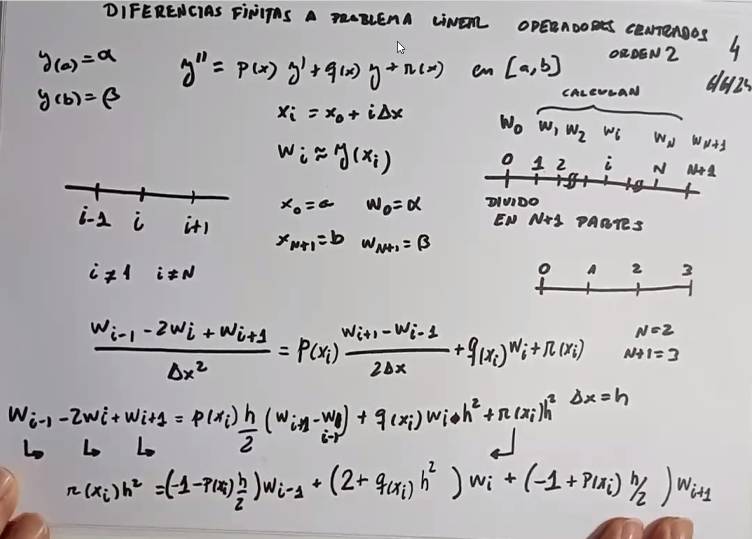 DIFERENCIAS FINITAS A PROBLEMA LINEAL OPERADORES CENTRADOS
ORDEN 2
4
y(a)=α
y(b)=β
y'' = p(x) y' + q(x) y + r(x) en [a,b]
CALCULAN
xi = x0 + iΔx
W0 W1 W2 Wi WN WN+1
wi ≈ y(xi)
0 1 2 i N N+1
x0=a w0=α
DIVIDO
EN N+1 PARTES
i-1 i i+1
xN+1=b wN+1=β
i≠1 i≠N
0 1 2 3
(wi-1 - 2wi + wi+1)/Δx² = p(xi) (wi+1 - wi-1)/2Δx + q(xi) wi + r(xi)
N=2
N+1=3
Δx=h
wi-1 - 2wi + wi+1 = p(xi) h/2 (wi+1 - wi-1) + q(xi) wi•h² + r(xi)h²
r(xi)h² = (-1-p(xi)h/2)wi-1 + (2+q(xi)h²)wi + (-1+p(xi)h/2)wi+1